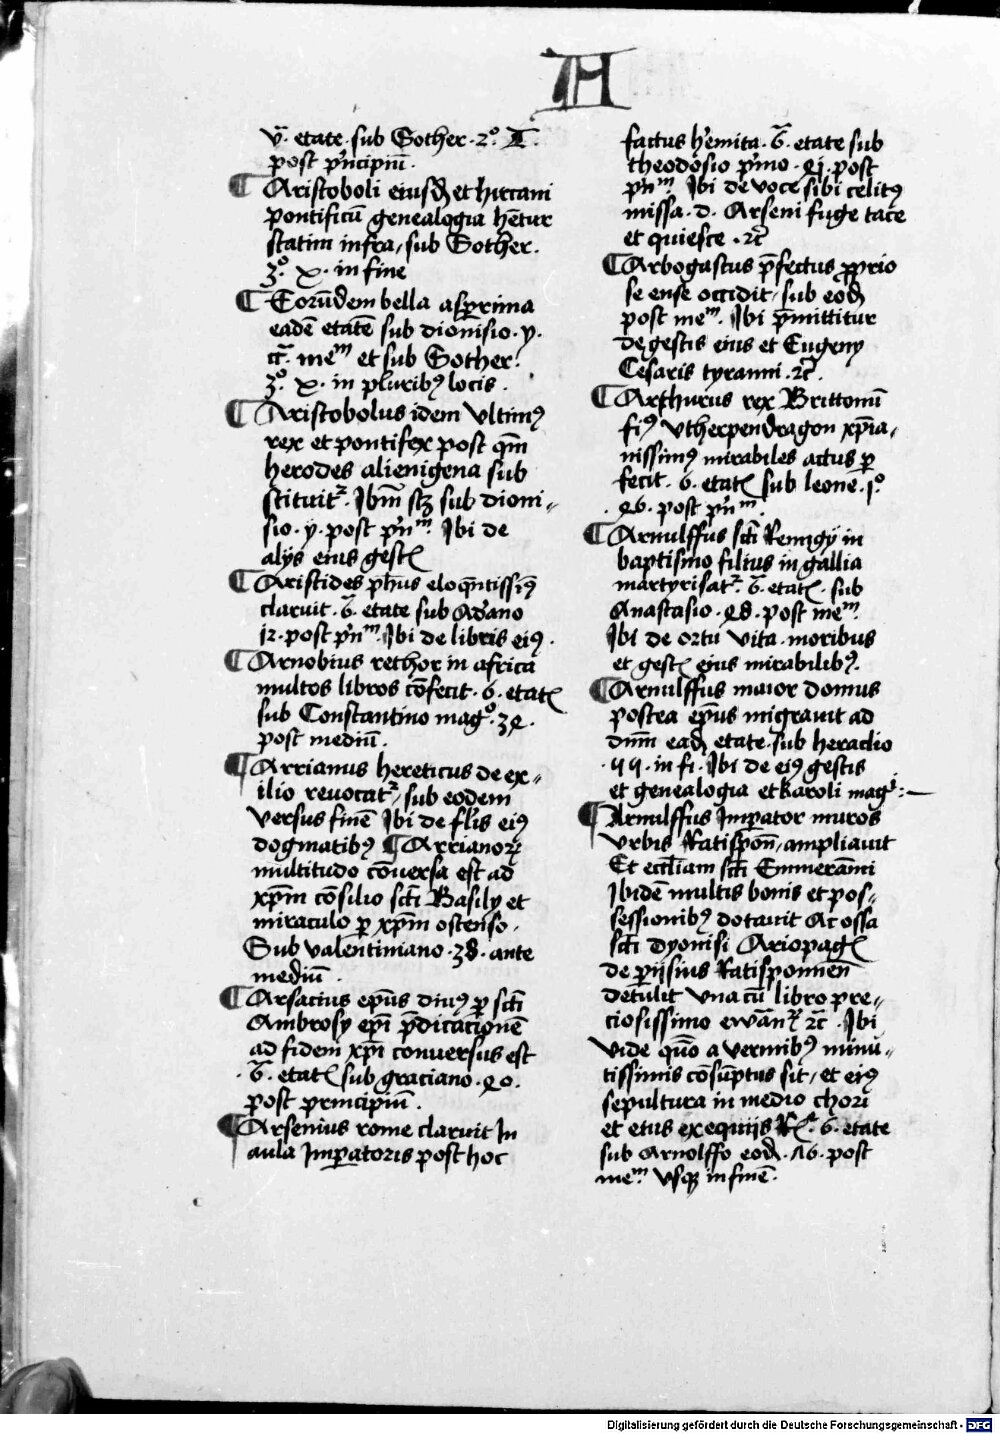 A
v̄. etate. sub Gother. 2°. X.
post p'ncipiū.
¶ Aristoboli eiusdē et hircani
pontificū genealogia hr̄ntur
statim infra, sub Gother.
3°. X. in fine
¶ Eorūdem bella asperrima
eadē etatē sub dionisio. y.
et sub Gother.
3°. X. in pluribꝰ locis.
¶ Aristobolus idem vltimꝰ
rex et pontifex post qm̄
herodes alienigena sub
stituit᷑. Ibm̄ scz sub dioni-
sio. y. post p'nᵐ. Ibi de
alijs eius gestꝭ
¶ Aristides ph̄us eloqn̄tissiꝰ
claruit. v̄. etate sub Ad'ano
12. post p'nᵐ. Ibi de libris eiꝰ.
¶ Arnobius rethor in africa
multos libros cōfecit. 6. etatꝭ
sub Constantino mag°. 32.
post mediū.
¶ Arrianus hereticus de ex-
ilio reuocat᷑, sub eodem
versus finē Ibi de fl'is eiꝰ
dogmatibꝰ ¶ Arrianoꝝ
multitudo cōuersa est ad
xp̄m cōsilio sct̄i Basilij et
miraculo ꝑ xp̄m ostenso.
Sub valentiniano. 38. ante
mediū.
¶ Arsacius ep̄us diuꝰ ꝑ sct̄i
Ambrosij ep̄i p̄dicationē
ad fidem xp̄i conuersus est
v̄. etatꝭ sub graciano. 20.
post principiū.
¶ Arsenius rome claruit In
aula Imꝑatoris post hoc
factus h'emita. v̄. etate sub
theodosio p'mo. 21. post
p'nᵐ. Ibi de voce sibi celitꝰ
missa. d. Arseni fuge tace
et quiesce. ⁊c̄
¶ Arbogastus p̄fectus ꝓprio
se ense occidit, sub eodē
post meᵐ. Ibi p̄mittitur
de gestis eius et Eugenij
Cesaris tyranni. ⁊c̄.
¶ Arthurus rex Brittonū
fiꝰ vtherpendragon xp̄ia-
nissimꝰ mirabiles actus ꝑ
fecit. 6. etatꝭ sub leone. 1°
26. post p'nᵐ.
¶ Arnulffus sct̄i Remigij in
baptismo filius in gallia
martyrisat᷑. v̄. etatꝭ. sub
Anastasio. 28. post meᵐ.
Ibi de ortu vita. moribus
et gestꝭ eius mirabilibꝰ.
¶ Arnulffus maior domus
postea ep̄us migrauit ad
dnm̄ eadē etate. sub heraclio
.44. in fi. Ibi de eiꝰ gestis
et genealogia et karoli magⁱ:
¶ Arnulffus Imꝑator muros
vrbis Ratispon̄, ampliauit
Et eccl̄iam sct̄i Emmerāmi
Ibidē multis bonis et pos-
sessionibꝰ dotauit Ac ossa
sct̄i dyonisi Ariopagꝭ
de ꝑijsius Ratisponnen̄
detulit vna cū libro pre-
ciosissimo ewan̄ ⁊c̄. Ibi
vide quō a vermibꝰ minu-
tissimis cōsūptus sit, et eiꝰ
sepultura in medio chori
et eius exequijs Rᵉ. 6. etate
sub Arnolffo eodē. 16. post
meᵐ. vsqꝫ in finē.
Digitalisierung gefördert durch die Deutsche Forschungsgemeinschaft - DFG